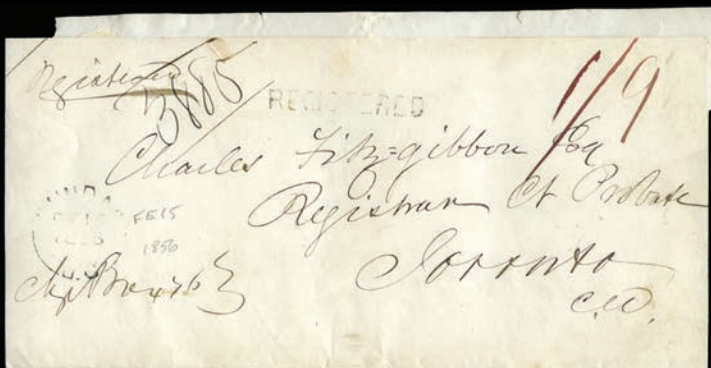 Registered
3885
REGISTERED
1/9
Charles Fitz=gibbon Esq
Registrar Ct Probate
Toronto
C.W.
FE 15
1856